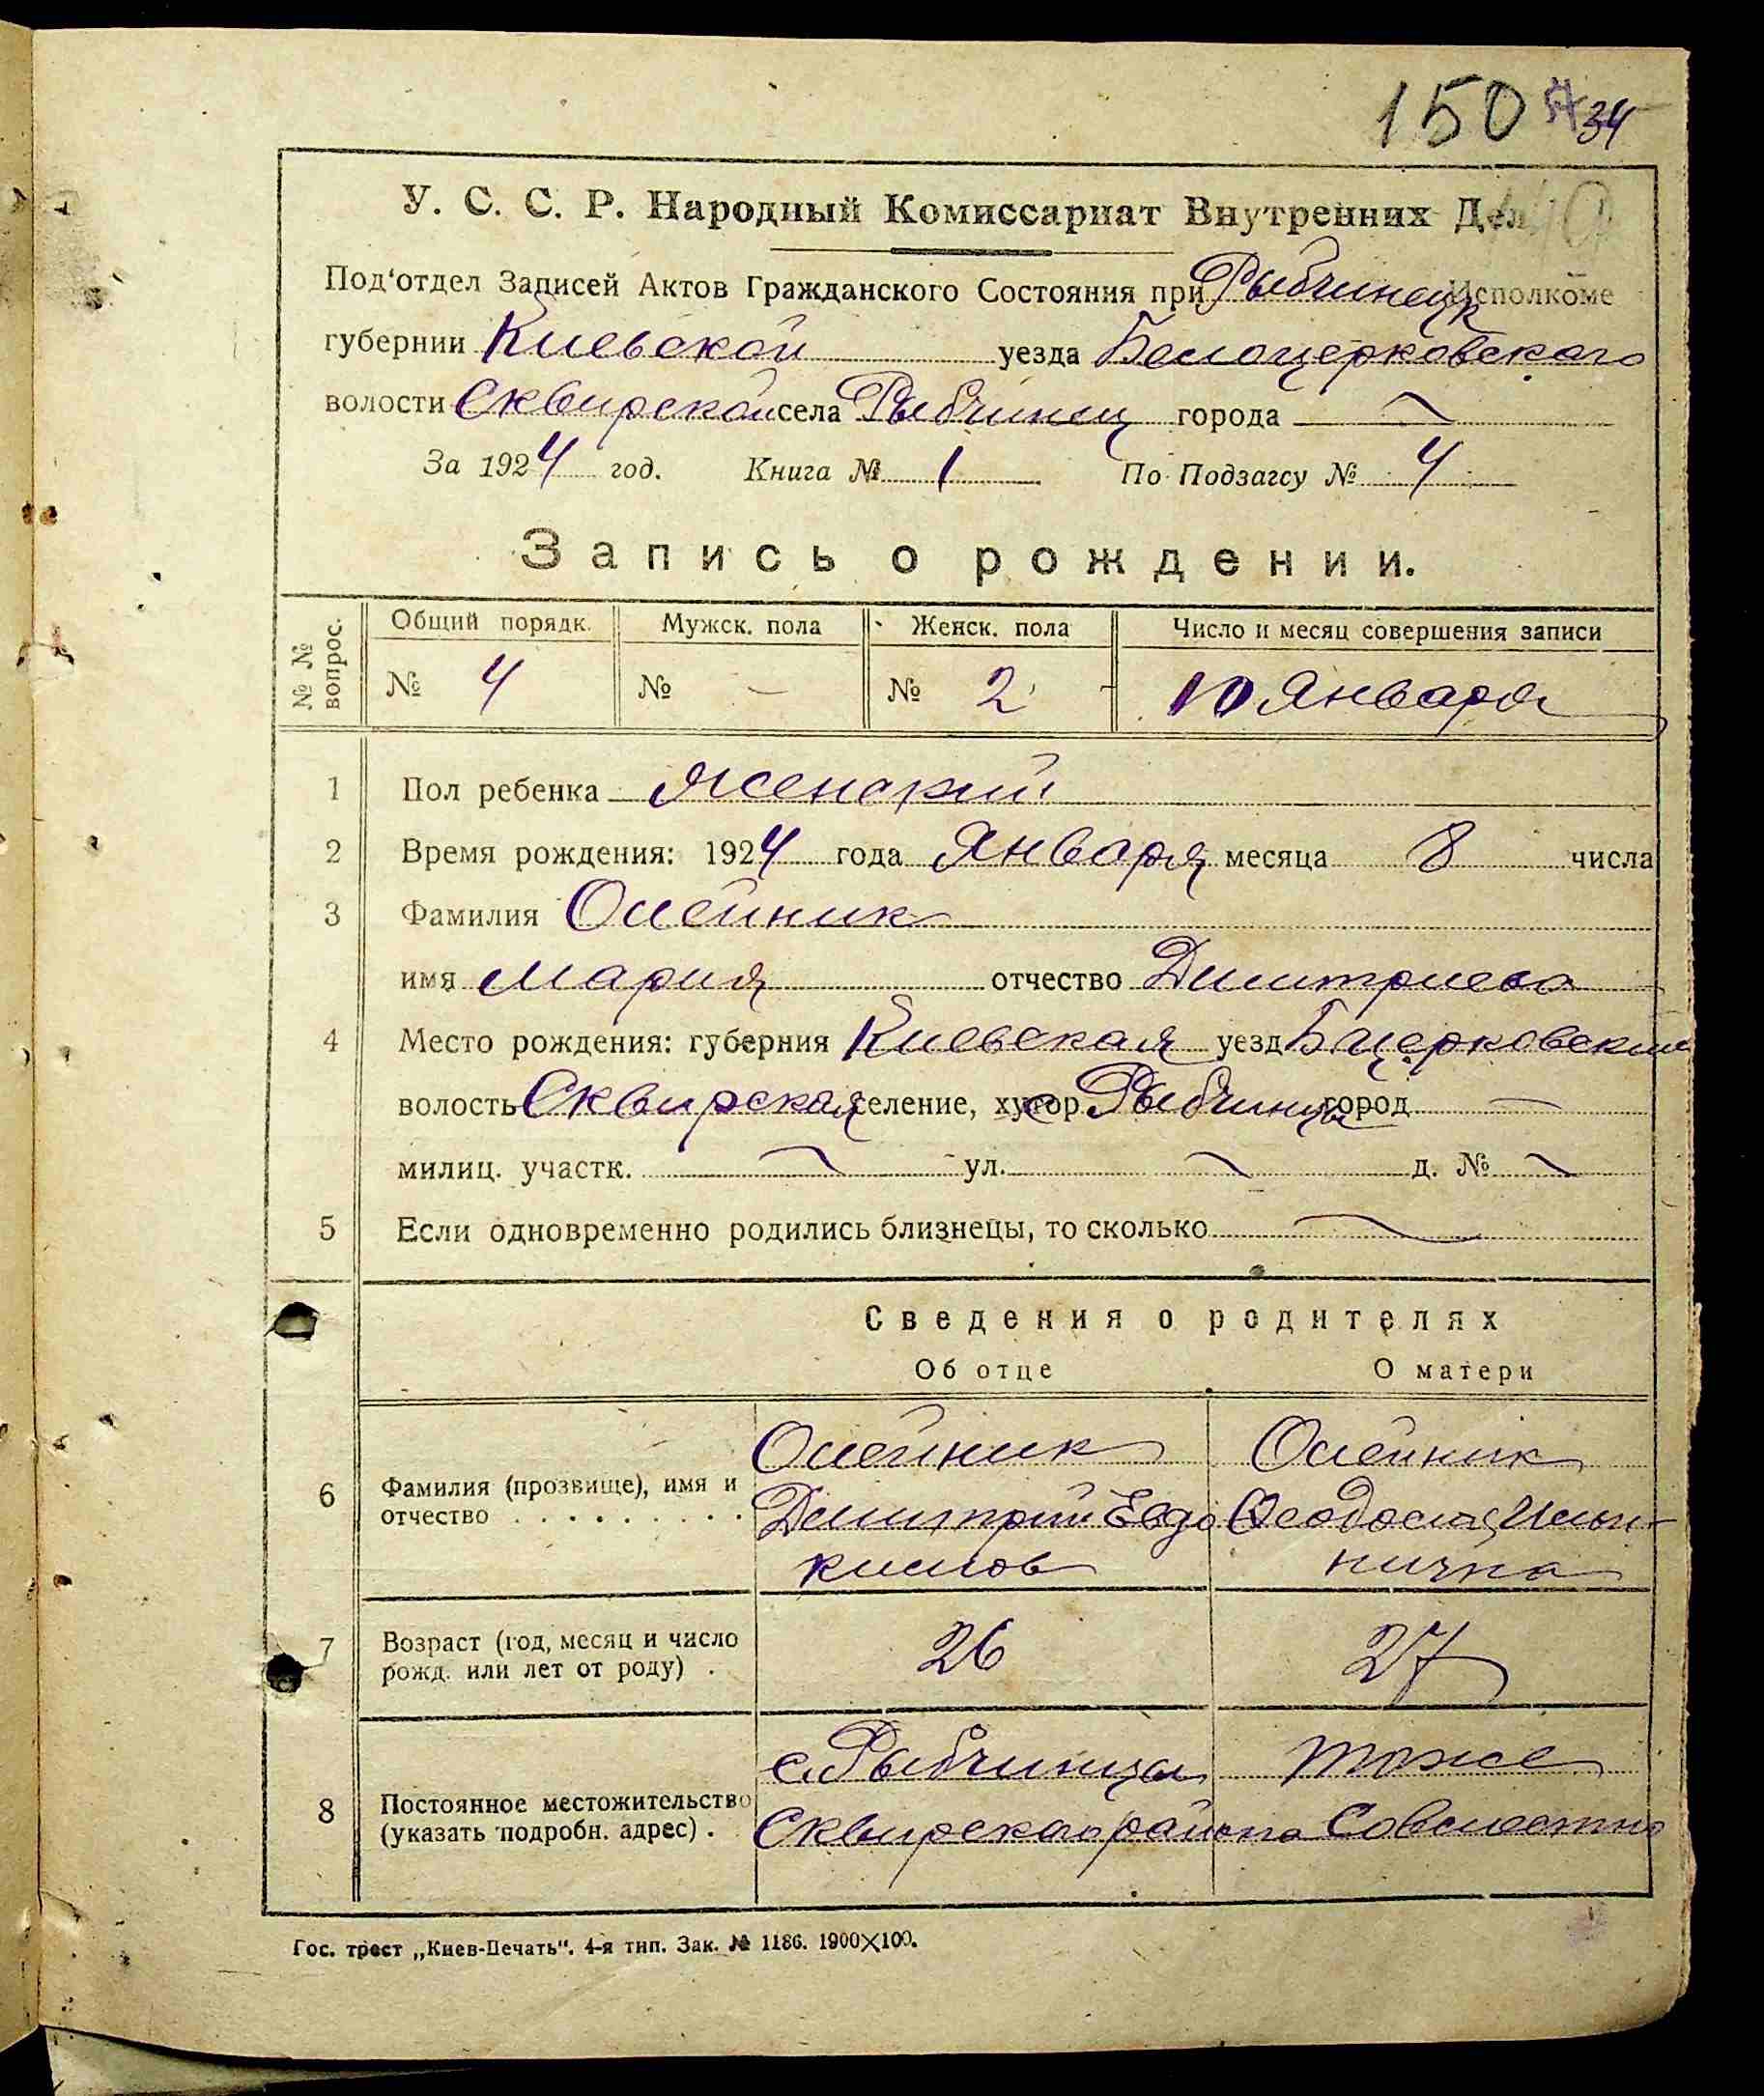 150 34
У. С. С. Р. Народный Комиссариат Внутренних Дел
Под'отдел Записей Актов Гражданского Состояния при Рыбчинецк Исполкоме
губернии Киевской уезда Белоцерковского
волости Сквирской села Рыбчинец города —
За 1924 год. Книга № 1 По Подзагсу № 4
Запись о рождении.
№ № вопрос.
Общий порядк. Мужск. пола Женск. пола Число и месяц совершения записи
№ 4 № — № 2 10 Января
1 Пол ребенка Женский
2 Время рождения: 1924 года Января месяца 8 числа
3 Фамилия Олейник
имя Мария отчество Димитриева
4 Место рождения: губерния Киевская уезд Бцерковский
волость Сквирская селение, хутор с Рыбчинцы город —
милиц. участк. — ул. — д. № —
5 Если одновременно родились близнецы, то сколько —
Сведения о родителях
Об отце О матери
6 Фамилия (прозвище), имя и отчество
Олейник
Димитрий Евдо
кимов
Олейник
Феодосия Ильи-
нична
7 Возраст (год, месяц и число рожд. или лет от роду) . 26 27
8 Постоянное местожительство (указать подробн. адрес) .
с. Рыбчинцы
Сквирского района
тоже
Совместно
Гос. трест „Киев-Печать". 4-я тип. Зак. № 1186. 1900×100.